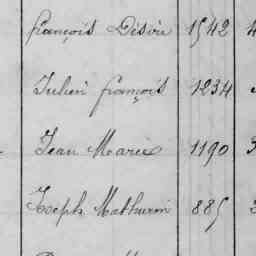 françois Désiré 1542 4
Julien françois 1234
Jean Marie 1190 3
Joseph Mathurin 885 2